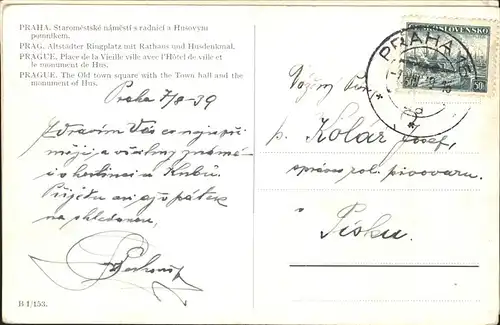 PRAHA. Staroměstské náměstí s radnicí a Husovým
pomníkem.
PRAG. Altstädter Ringplatz mit Rathaus und Husdenkmal.
PRAGUE. Place de la Vieille ville avec l'Hôtel de ville et
le monument de Hus.
PRAGUE. The Old town square with the Town hall and the
monument of Hus.
Praha 7/8-39
Zdravím Vás co nejsrdeč
a všechny známé
i v hostinci a Klubu.
Přijedu až v pátek
na shledanou,
B 1/153.
PRAHA
ČESKOSLOVENSKO
50
Vážený Pán
p. Kolár Josef,
správce pivovaru.
Písku.